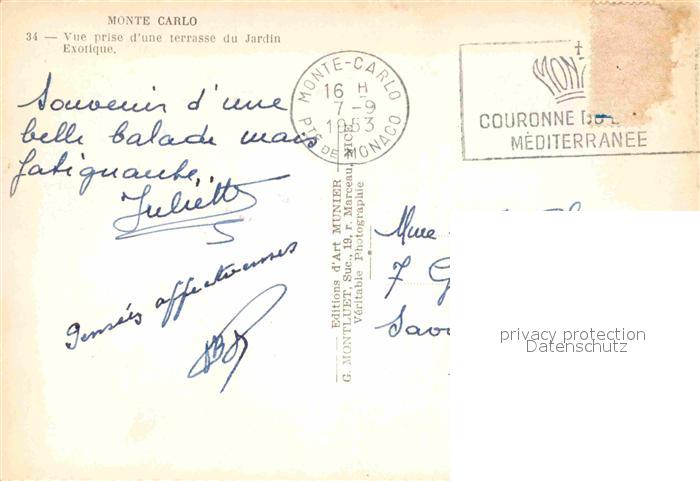 MONTE CARLO
34 — Vue prise d'une terrasse du Jardin
Exotique.
Souvenir d'une
belle balade mais
fatiguante.
Juliette
Pensées affectueuses
MONTE-CARLO
16 H
7-9
1953
PTÉ DE MONACO
COURONNE DE
MÉDITERRANÉE
Editions d'Art MUNIER
G. MONTLUET, Suc., 19, r. Marceau, NICE
Véritable Photographie
Mme
7 G
Savo
privacy protection
Datenschutz